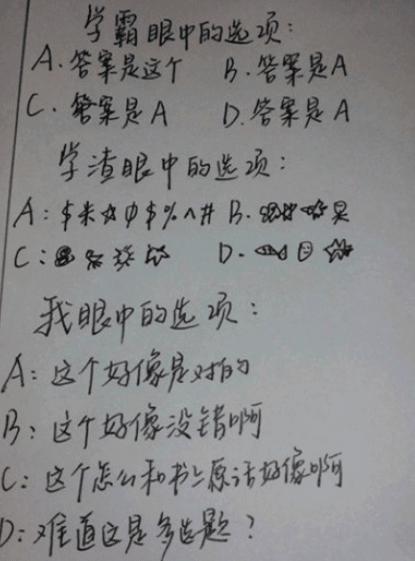 学霸眼中的选项：
A. 答案是这个 B. 答案是A
C. 答案是A D. 答案是A
学渣眼中的选项：
A：$米☆φ$%^# B.
C： D.
我眼中的选项：
A：这个好像是对的
B：这个好像没错啊
C：这个怎么和书上原话好像啊
D：难道这是多选题？